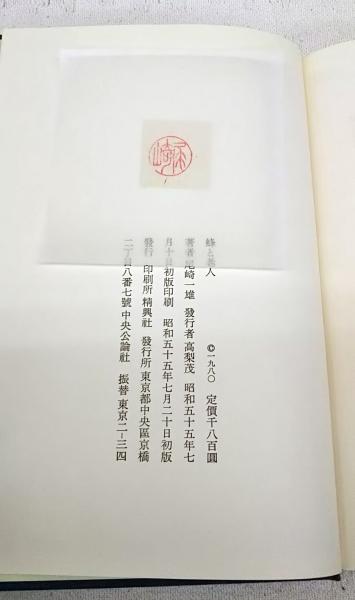 尾崎
蜂と老人 ©一九八〇 定價千八百圓
著者 尾崎一雄 發行者 高梨茂 昭和五十五年七
月十日初版印刷 昭和五十五年七月二十日初版
發行 印刷所 精興社 發行所 東京都中央區京橋
二丁目八番七號 中央公論社 振替 東京二–三四